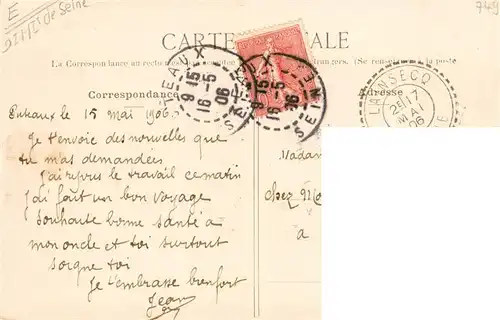 E
JII/I² de Seine
749
CARTE POSTALE
La Correspondance au recto
(Se ren
à la poste
Correspondance
Adresse
PUTEAUX
9 15
16-5
06
SEINE
PUTEAUX
9 15
16-5
06
SEINE
LAINSECQ
2E 17
MAI
06
Puteaux le 15 mai 1906
Je t'envoie des nouvelles que
tu m'as demandées
J'ai repris le travail ce matin
J'ai fait un bon voyage
Souhaite bonne santé a
mon oncle et toi surtout
soigne toi
Je t'embrasse bien fort
Jean
Madam
chez
a